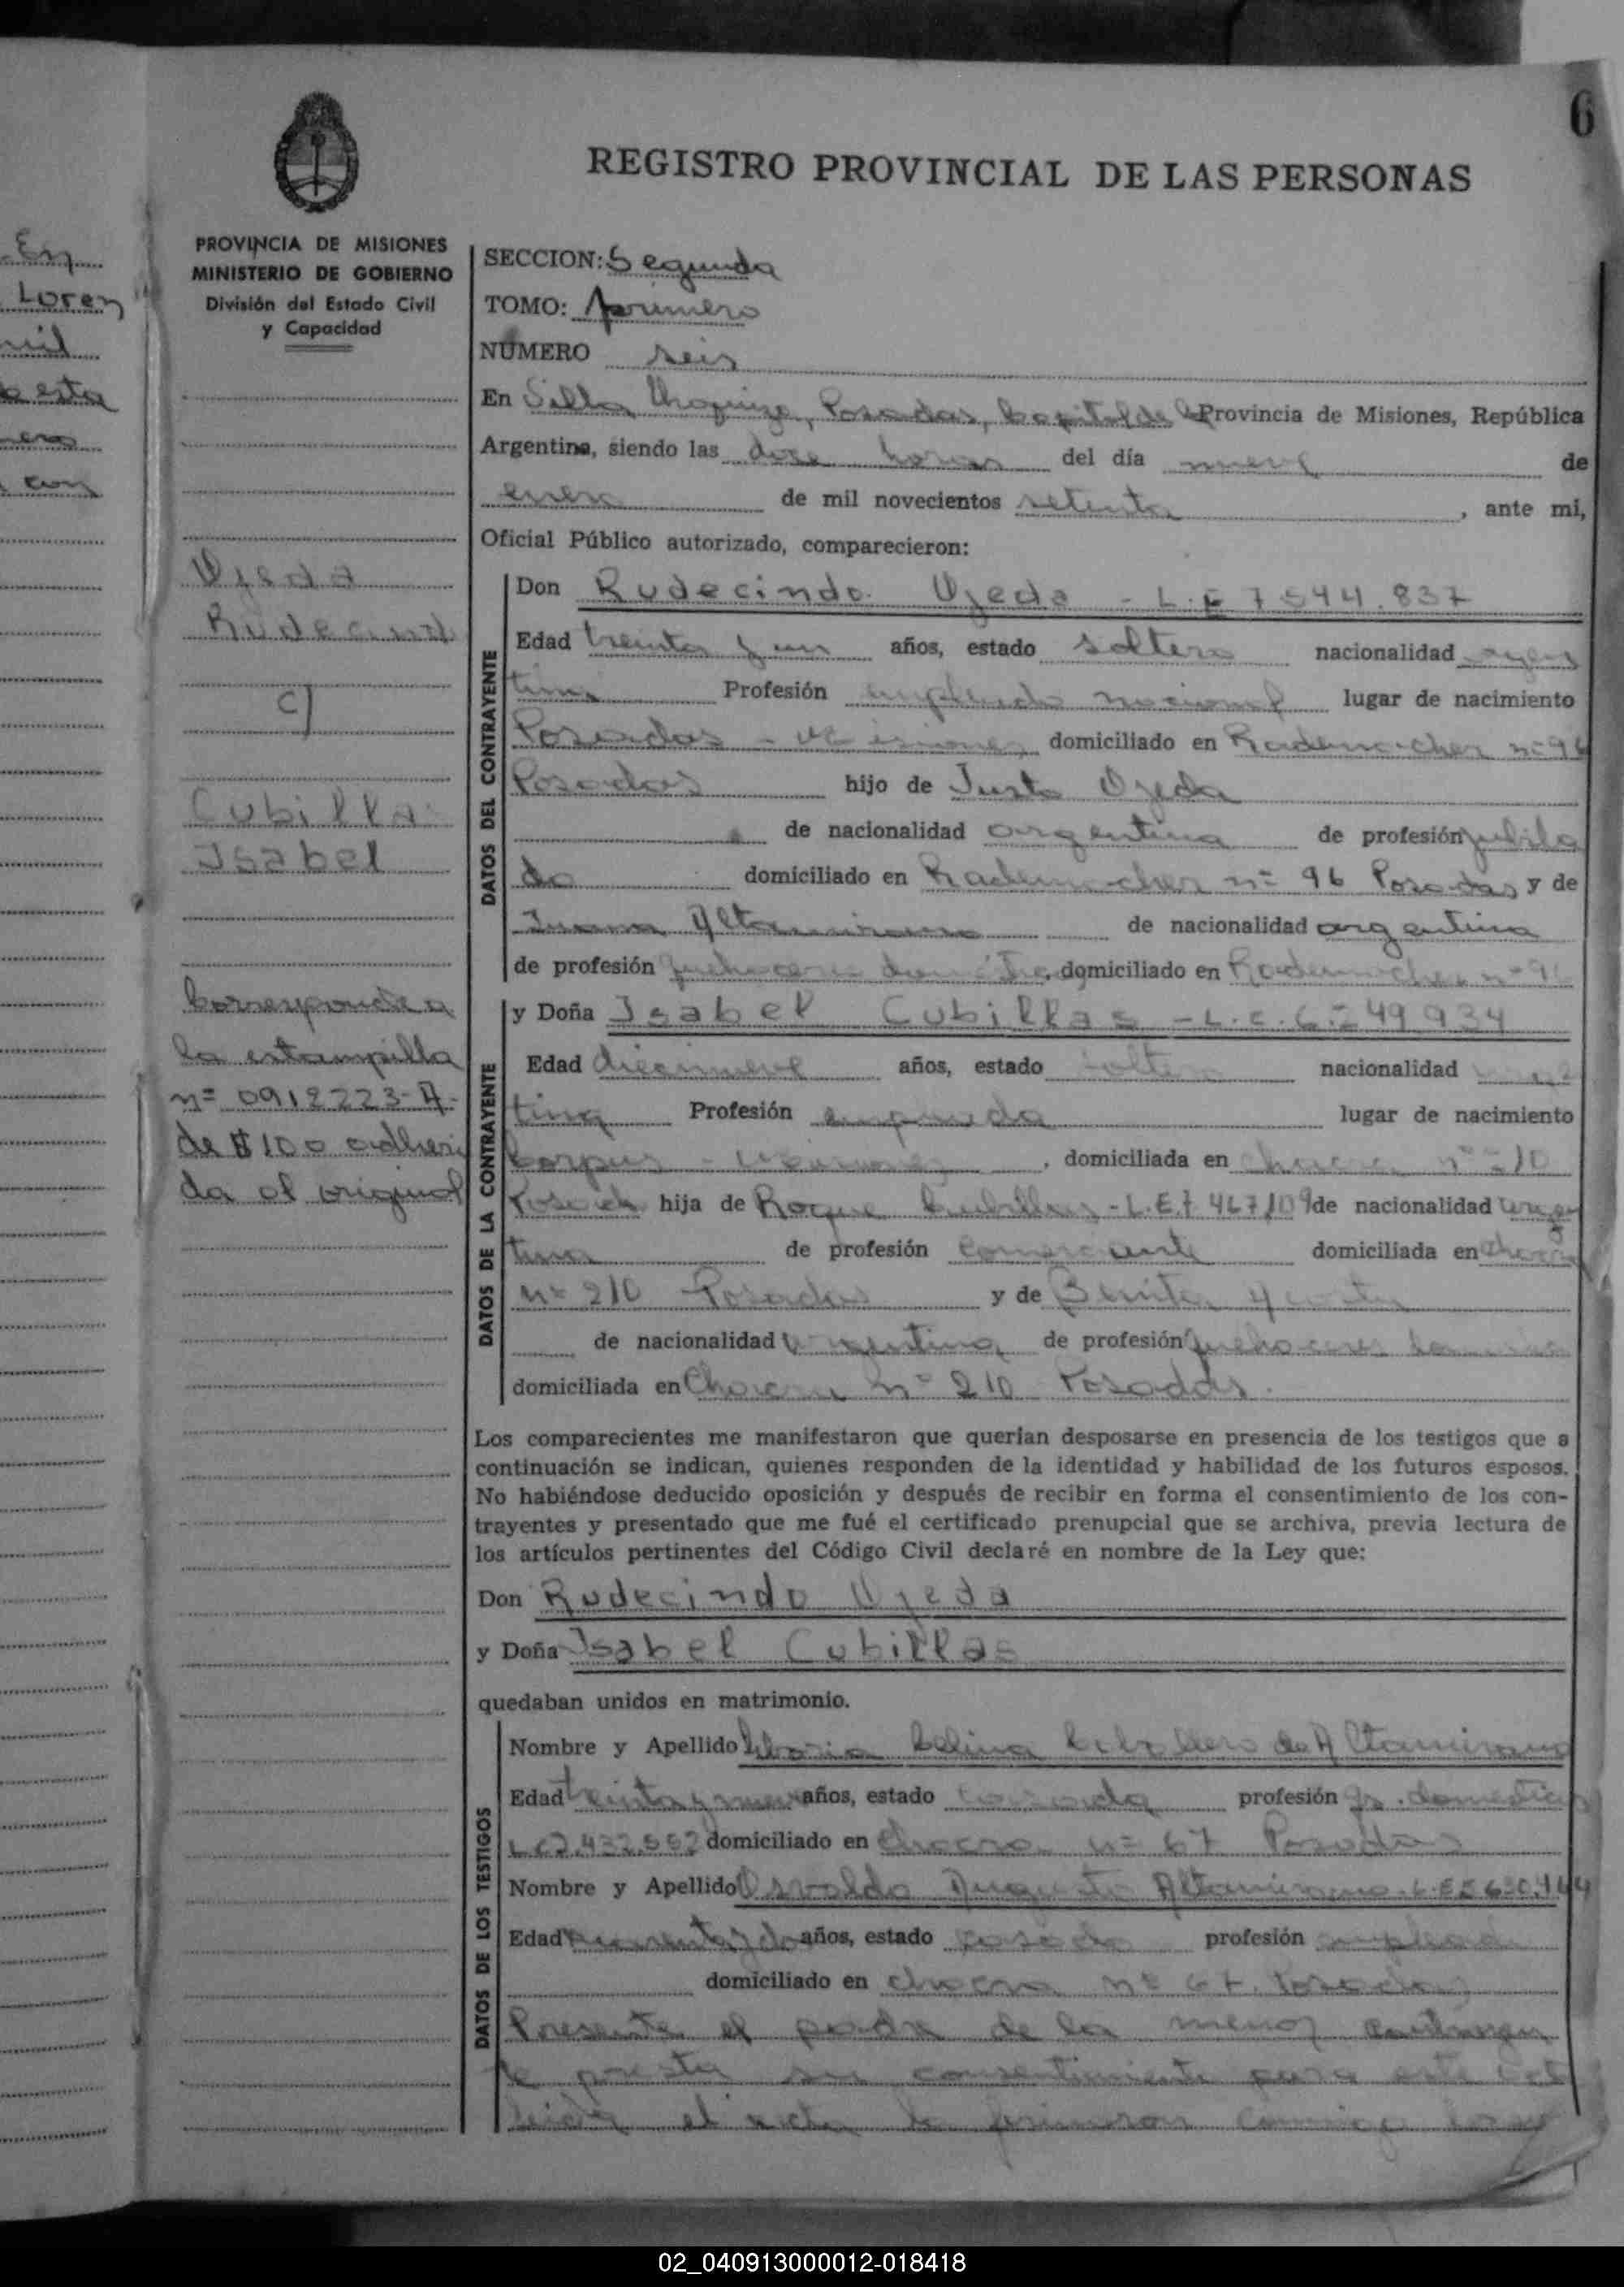 6
REGISTRO PROVINCIAL DE LAS PERSONAS
En
Loren
mil
esta
con
PROVINCIA DE MISIONES
MINISTERIO DE GOBIERNO
División del Estado Civil
y Capacidad
Ojeda
Rudecind
c/
Cubilla
Isabel
Corresponde a
la estampilla
nº 0912223-A-
de $ 100 adheri
da al original
SECCION: Segunda
TOMO: primero
NÚMERO seis
En Villa Posadas, Capital de la Provincia de Misiones, República
Argentina, siendo las doce horas del día nueve de
enero de mil novecientos setenta, ante mi,
Oficial Público autorizado, comparecieron:
DATOS DEL CONTRAYENTE
Don Rudecindo Ojeda - L.E 7.544.837
Edad treinta y un años, estado soltero nacionalidad argen
tina Profesión empleado nacional lugar de nacimiento
Posadas - Misiones domiciliado en Rademacher nº 96
Posadas hijo de Justo Ojeda
de nacionalidad argentina de profesión jubila
do domiciliado en Rademacher nº 96 Posadas y de
Juana Altamirano de nacionalidad argentina
de profesión quehaceres domésticos, domiciliado en Rademacher nº 96
DATOS DE LA CONTRAYENTE
y Doña Isabel Cubillas - L.C. 6.249934
Edad diecinueve años, estado soltera nacionalidad argen
tina Profesión lugar de nacimiento
Corpus - Misiones, domiciliada en chacra nº 210
Posadas hija de Roque Cubillas - L.E.7 467,109 de nacionalidad argen
tina de profesión comerciante domiciliada en Chacra
nº 210 Posadas y de Benita
de nacionalidad argentina de profesión quehaceres
domiciliada en Chacra nº 210 Posadas.
Los comparecientes me manifestaron que querían desposarse en presencia de los testigos que a
continuación se indican, quienes responden de la identidad y habilidad de los futuros esposos.
No habiéndose deducido oposición y después de recibir en forma el consentimiento de los con-
trayentes y presentado que me fué el certificado prenupcial que se archiva, previa lectura de
los artículos pertinentes del Código Civil declaré en nombre de la Ley que:
Don Rudecindo Ojeda
y Doña Isabel Cubillas
quedaban unidos en matrimonio.
DATOS DE LOS TESTIGOS
Nombre y Apellido Maria Celina Caballero de Altamirano
Edad treinta y nueve años, estado casada profesión qs. domesticos
L.C 2.432.552 domiciliado en Chacra nº 67 Posadas
Nombre y Apellido Osvaldo Augusto Altamirano L.E 5 630.444
Edad años, estado casado profesión empleado
domiciliado en chacra nº 67. Posadas
Presente el padre de la menor contrayen
te presta su consentimiento para este acto
leida el acta la firmaron conmigo
02_040913000012-018418